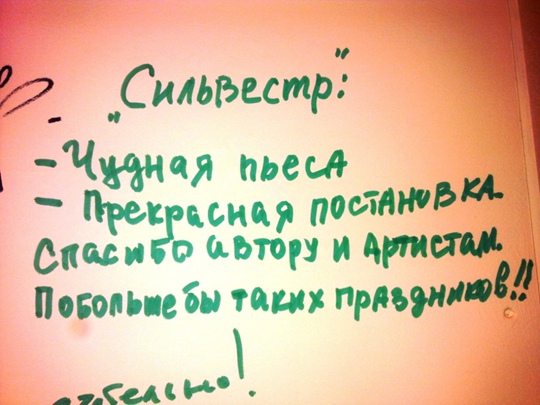 „Сильвестр":
- Чудная пьеса
- Прекрасная постановка.
Спасибо автору и артистам.
Побольше бы таких праздников!!